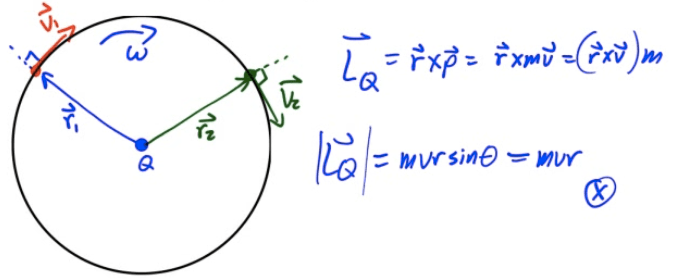 v⃗₁
ω
r⃗₁
r⃗₂
v⃗₂
Q
L⃗_Q = r⃗ x p⃗ = r⃗ x mv⃗ = (r⃗ x v⃗) m
|L⃗_Q| = mvr sinθ = mvr
ⓧ